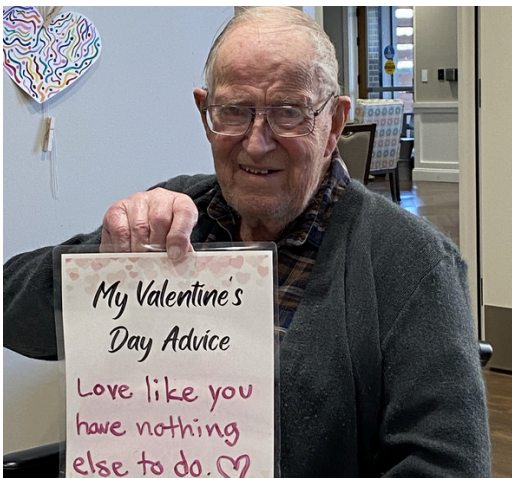 My Valentine's
Day Advice
Love like you
have nothing
else to do.